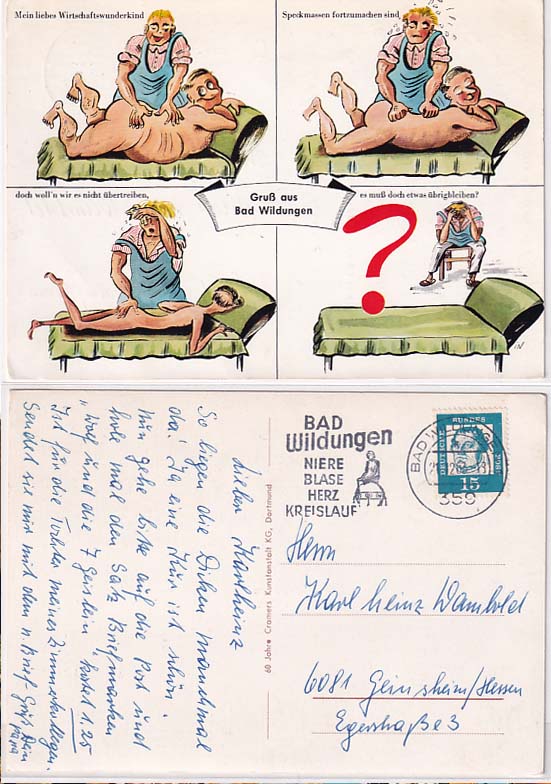 Mein liebes Wirtschaftswunderkind
Speckmassen fortzumachen sind,
doch woll'n wir es nicht übertreiben,
Gruß aus
Bad Wildungen
es muß doch etwas übrigbleiben?
BAD
Wildungen
NIERE
BLASE
HERZ
KREISLAUF
BAD WILDUNGEN
359
DEUTSCHE BUNDESPOST
15
60 Jahre Cramers Kunstanstalt KG, Dortmund
Lieber Karlheinz
So liegen die Dicken manchmal
da! Ja eine Kur ist schön.
Nun gehe bitte auf die Post und
hole mal den Satz Briefmarken
"Wolf und die 7 Geislein kostet 1,25
Ist für die Tochter meines Zimmerkollegen.
Sendet sie mir mit dem n. Brief. Gruß Dein
Papa
Herrn
Karl Heinz Dambold
6081 Geinsheim/Hessen
Egerstraße 3